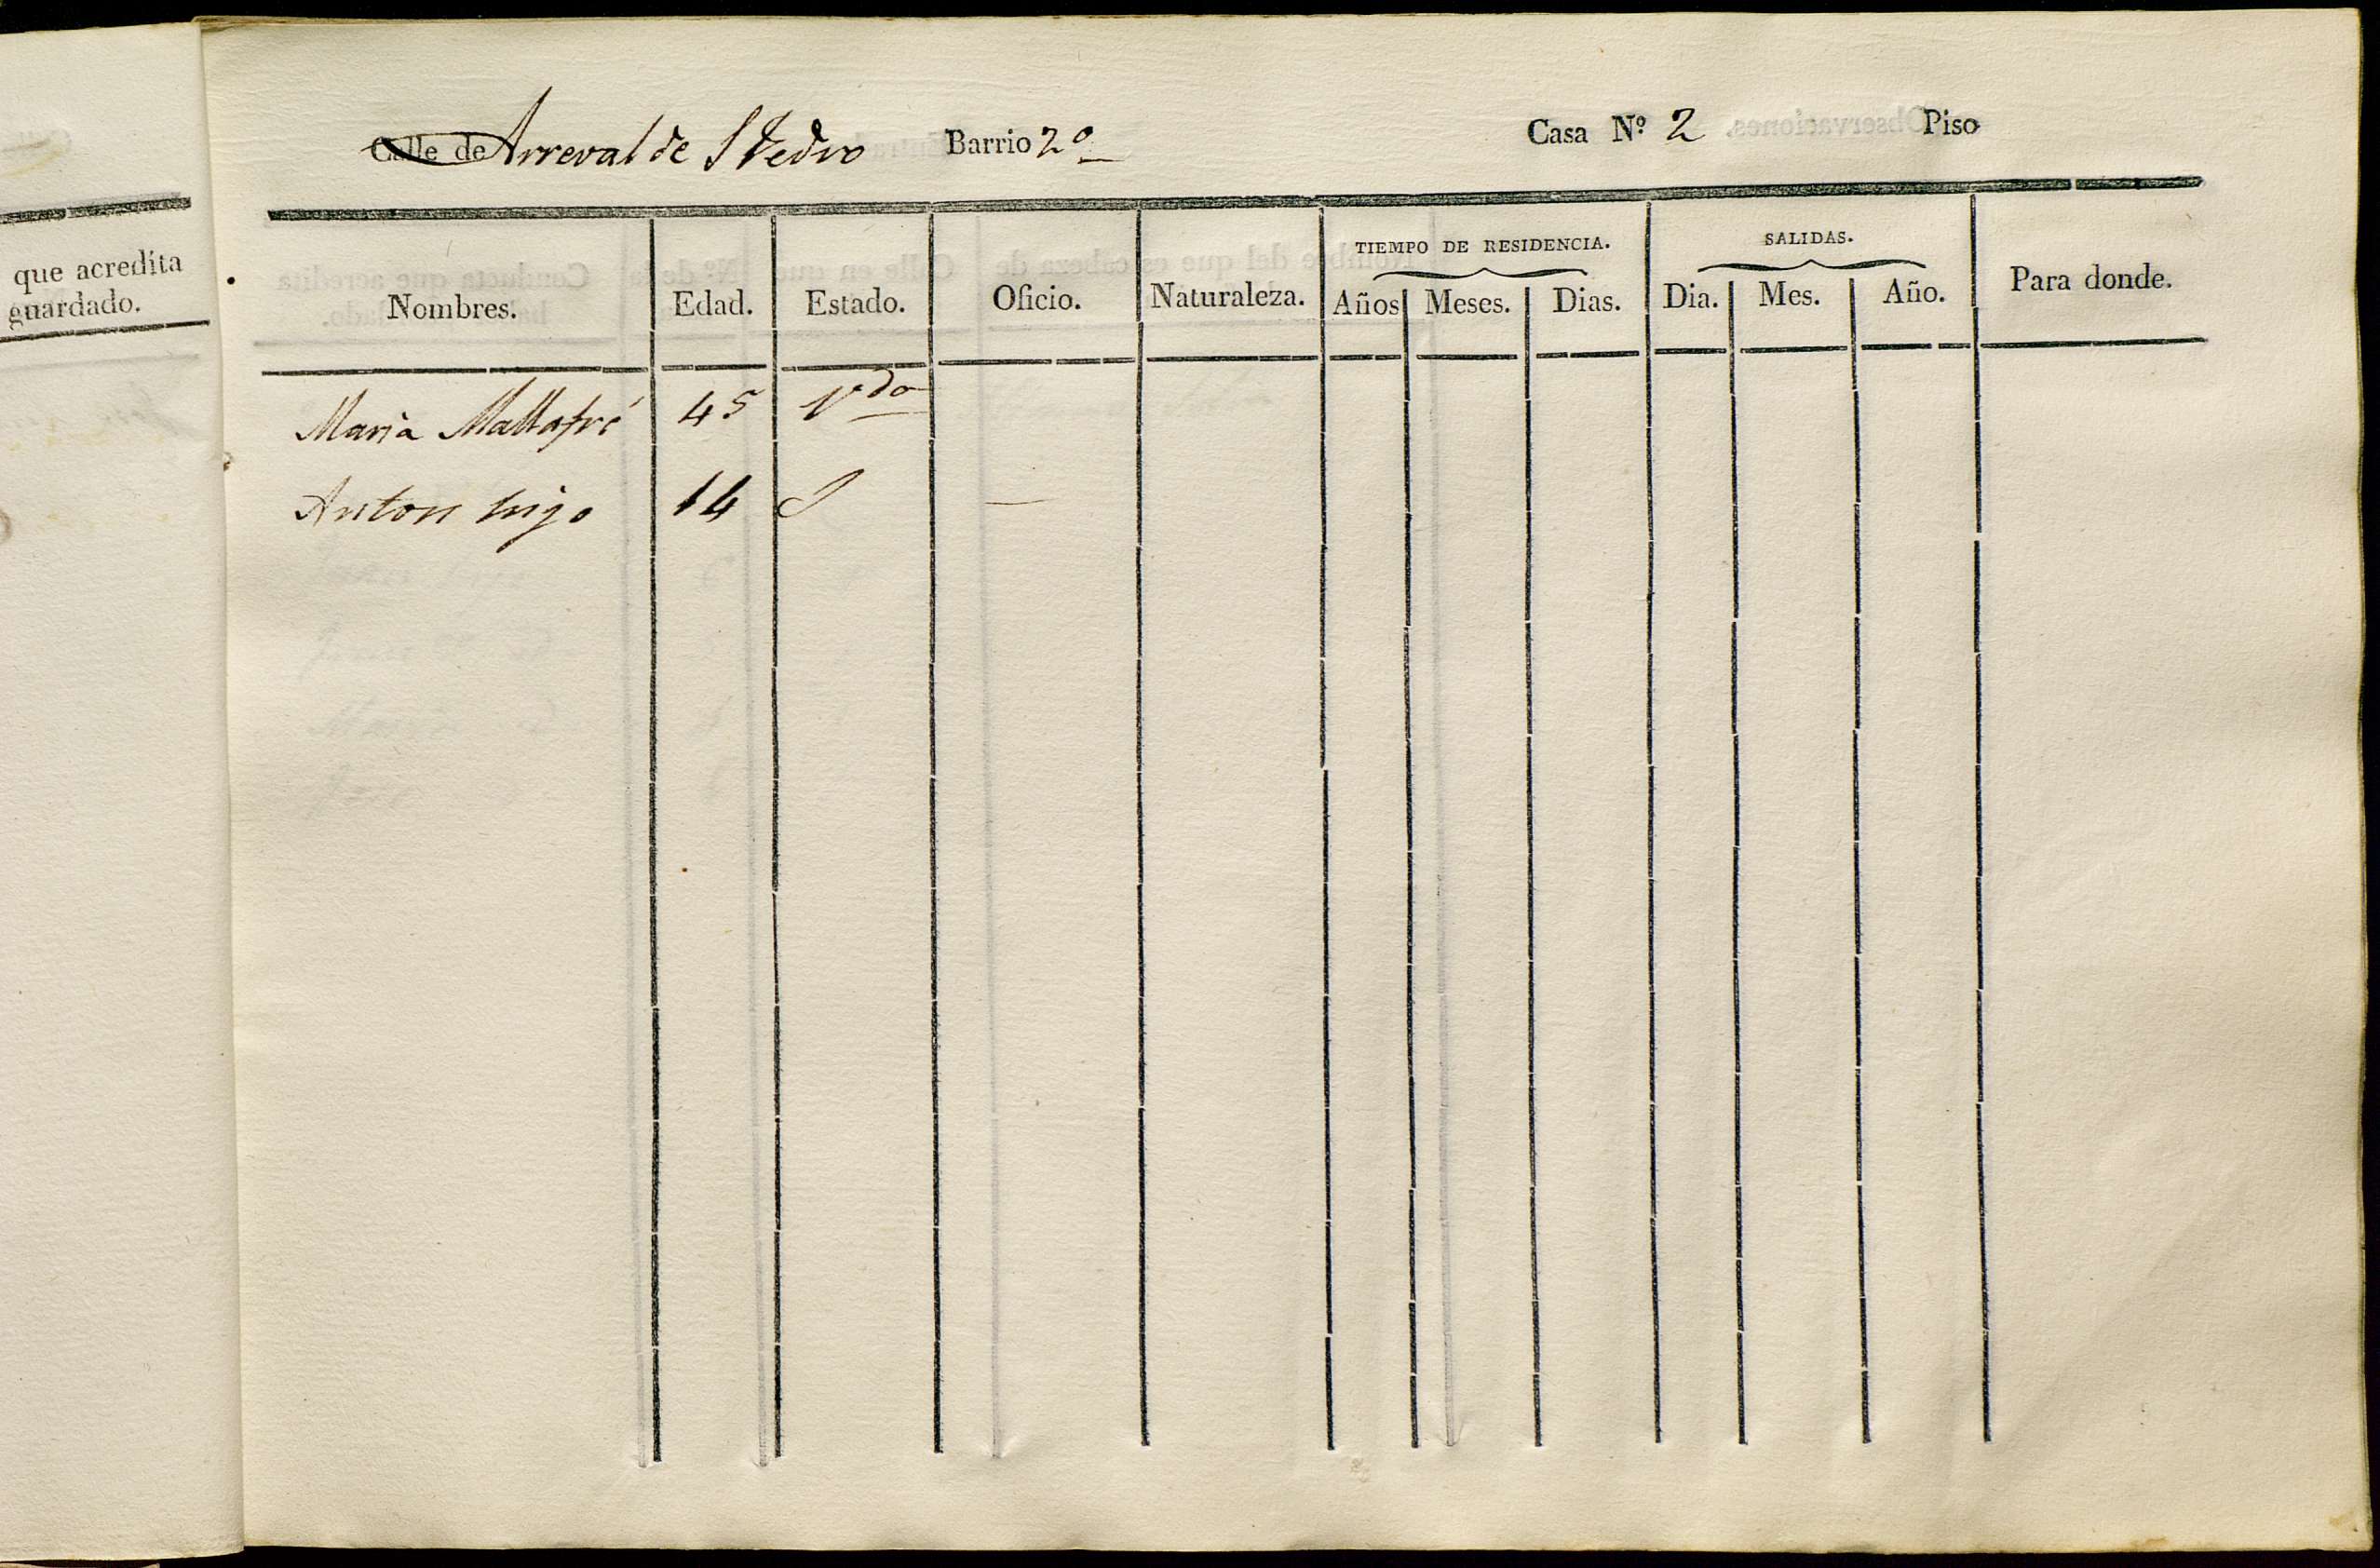 que acredita
guardado.
Calle de Arreval de S Pedro Barrio 2º Casa Nº 2 Piso
Nombres. Edad. Estado. Oficio. Naturaleza. TIEMPO DE RESIDENCIA. Años Meses. Dias. SALIDAS. Dia. Mes. Año. Para donde.
Maria Mallafré 45 Vda
Anton hijo 14 S —